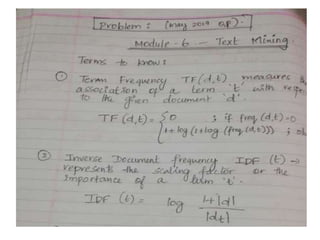 Problem: (May 2019 QP).
Module-6 - Text Mining.
Terms to know:
① Term Frequency TF(d,t) measures the
association of a term 't' with
to the given document 'd'.
TF(d,t) = { 0 ; if freq(d,t)=0
1+log(1+log(freq(d,t))) ;
② Inverse Document frequency IDF (t) →
represents the scaling factor or the
importance of a term 't'.
IDF (t) = log 1+|d|
|dt|